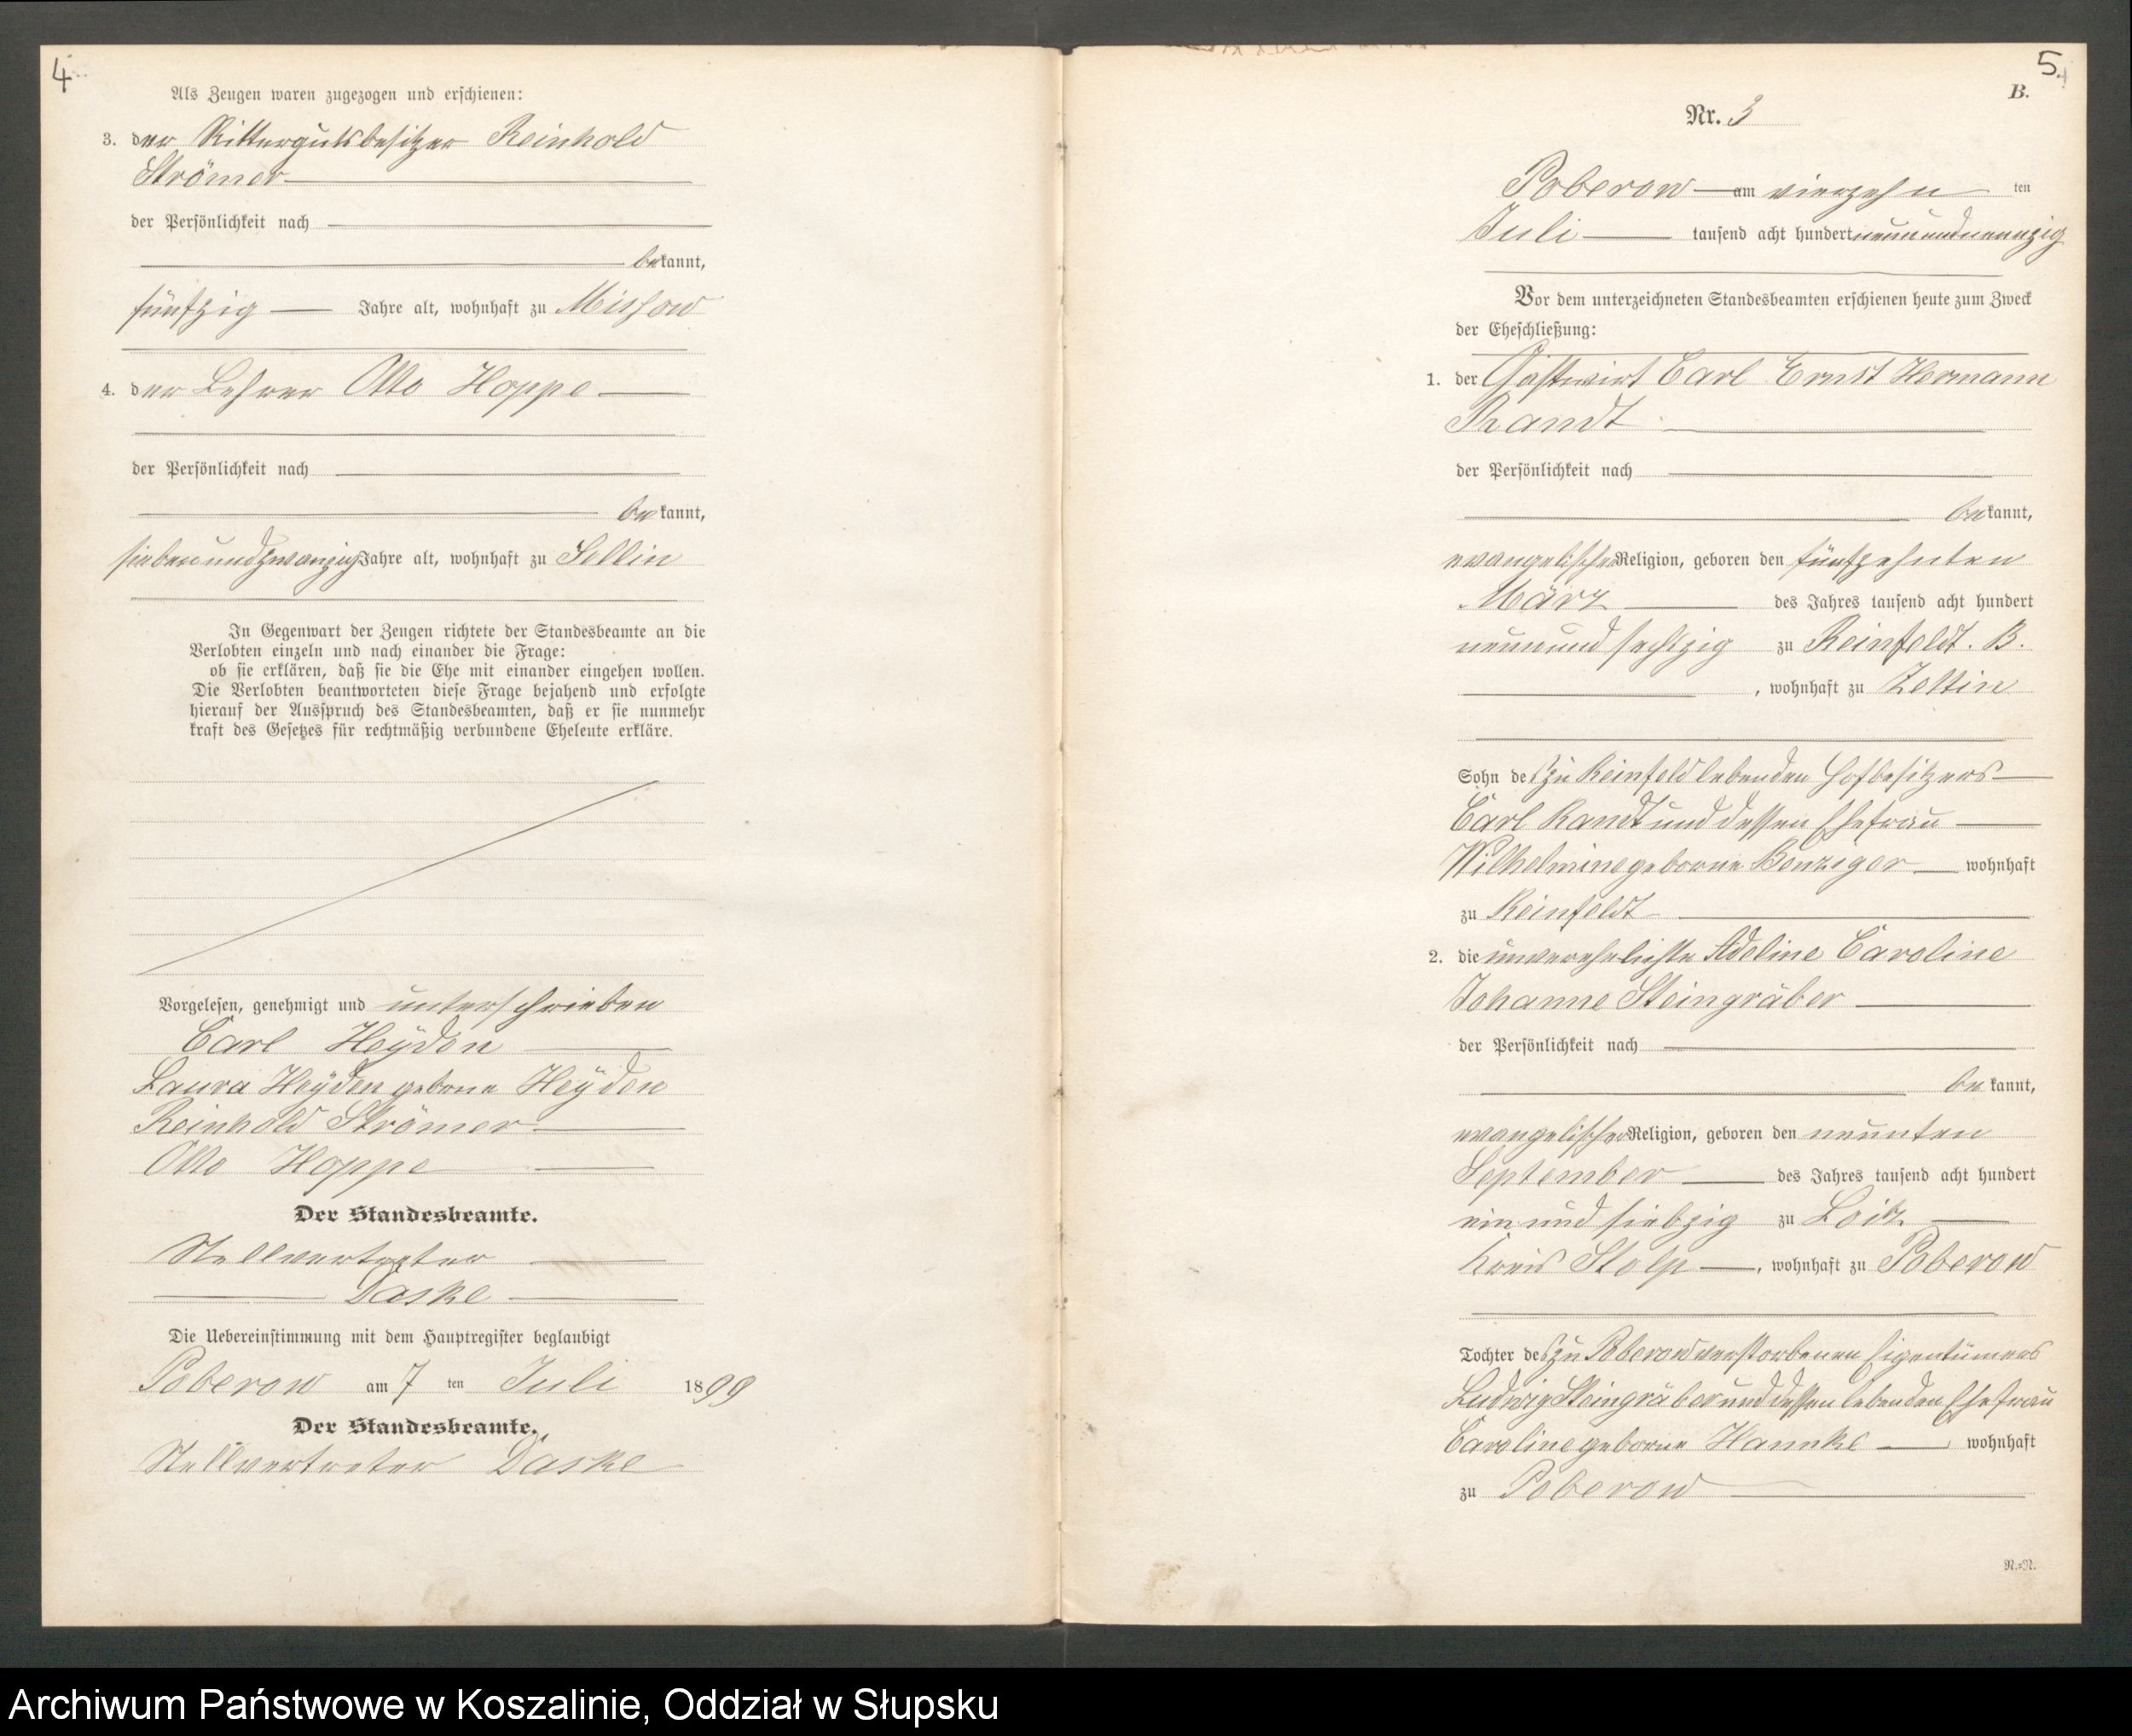 4
Als Zeugen waren zugezogen und erschienen:
3. der Rittergutsbesitzer Reinhold
Strömer
der Persönlichkeit nach
bekannt,
fünfzig Jahre alt, wohnhaft zu Missow
4. der Lehrer Otto Hoppe
der Persönlichkeit nach
bekannt,
siebenundzwanzig Jahre alt, wohnhaft zu Sellin
In Gegenwart der Zeugen richtete der Standesbeamte an die
Verlobten einzeln und nach einander die Frage:
ob sie erklären, daß sie die Ehe mit einander eingehen wollen.
Die Verlobten beantworteten diese Frage bejahend und erfolgte
hierauf der Ausspruch des Standesbeamten, daß er sie nunmehr
kraft des Gesetzes für rechtmäßig verbundene Eheleute erkläre.
Vorgelesen, genehmigt und unterschrieben
Carl Heyden
Laura Heyden geborne Heyden
Reinhold Strömer
Otto Hoppe
Der Standesbeamte.
Stellvertreter
Daske
Die Uebereinstimmung mit dem Hauptregister beglaubigt
Poberow am 7 ten Juli 1899
Der Standesbeamte.
Stellvertreter Daske
5.
B.
Nr. 3
Poberow am vierzehn ten
Juli tausend acht hundert neunundneunzig
Vor dem unterzeichneten Standesbeamten erschienen heute zum Zweck
der Eheschließung:
1. der Gastwirt Carl Ernst Hermann
Randt
der Persönlichkeit nach
bekannt,
evangelischer Religion, geboren den fünfzehnten
März des Jahres tausend acht hundert
neunund sechszig zu Reinfeldt. B.
, wohnhaft zu Zettin
Sohn des zu Reinfeld lebenden Hofbesitzers
Carl Randt und dessen Ehefrau
Wilhelmine geborne Benziger wohnhaft
zu Reinfeldt
2. die unverehelichte Adeline Caroline
Johanne Steingräber
der Persönlichkeit nach
bekannt,
evangelischer Religion, geboren den neunten
September des Jahres tausend acht hundert
ein und siebzig zu Loitz
Kreis Stolp, wohnhaft zu Poberow
Tochter des zu Poberow verstorbenen Eigentümers
Ludwig Steingräber und dessen lebenden Ehefrau
Caroline geborne Hannke wohnhaft
zu Poberow
N.=N.
Archiwum Państwowe w Koszalinie, Oddział w Słupsku